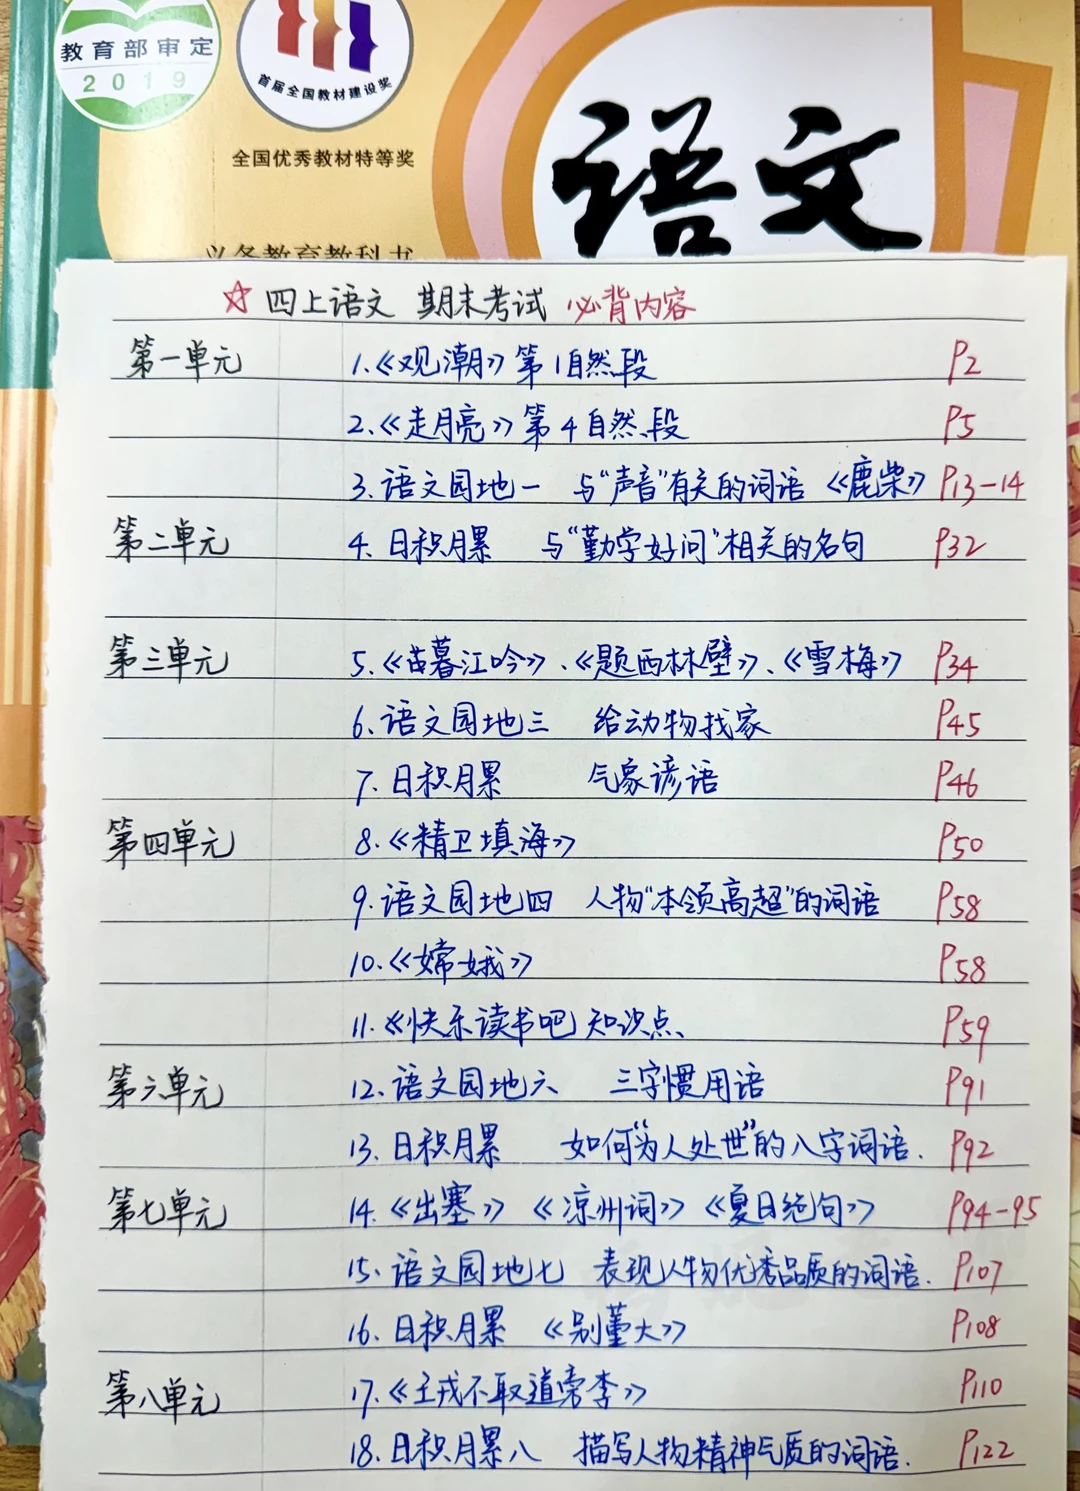 教育部审定
2019
首届全国教材建设奖
全国优秀教材特等奖
义务教育教科书
语文
☆ 四上语文 期末考试 必背内容
第一单元 1.《观潮》第1自然段 P2
2.《走月亮》第4自然段 P5
3.语文园地一 与“声音”有关的词语 《鹿柴》 P13-14
第二单元 4.日积月累 与“勤学好问”相关的名句 P32
第三单元 5.《暮江吟》、《题西林壁》、《雪梅》 P34
6.语文园地三 给动物找家 P45
7.日积月累 气象谚语 P46
第四单元 8.《精卫填海》 P50
9.语文园地四 人物“本领高超”的词语 P58
10.《嫦娥》 P58
11.《快乐读书吧 知识点 P59
第六单元 12.语文园地六 三字惯用语 P91
13.日积月累 如何“为人处世”的八字词语. P92
第七单元 14.《出塞》《凉州词》《夏日绝句》 P94-95
15.语文园地七 表现人物优秀品质的词语. P107
16.日积月累 《别董大》 P108
第八单元 17.《王戎不取道旁李》 P110
18.日积月累八 描写人物精神气质的词语. P122